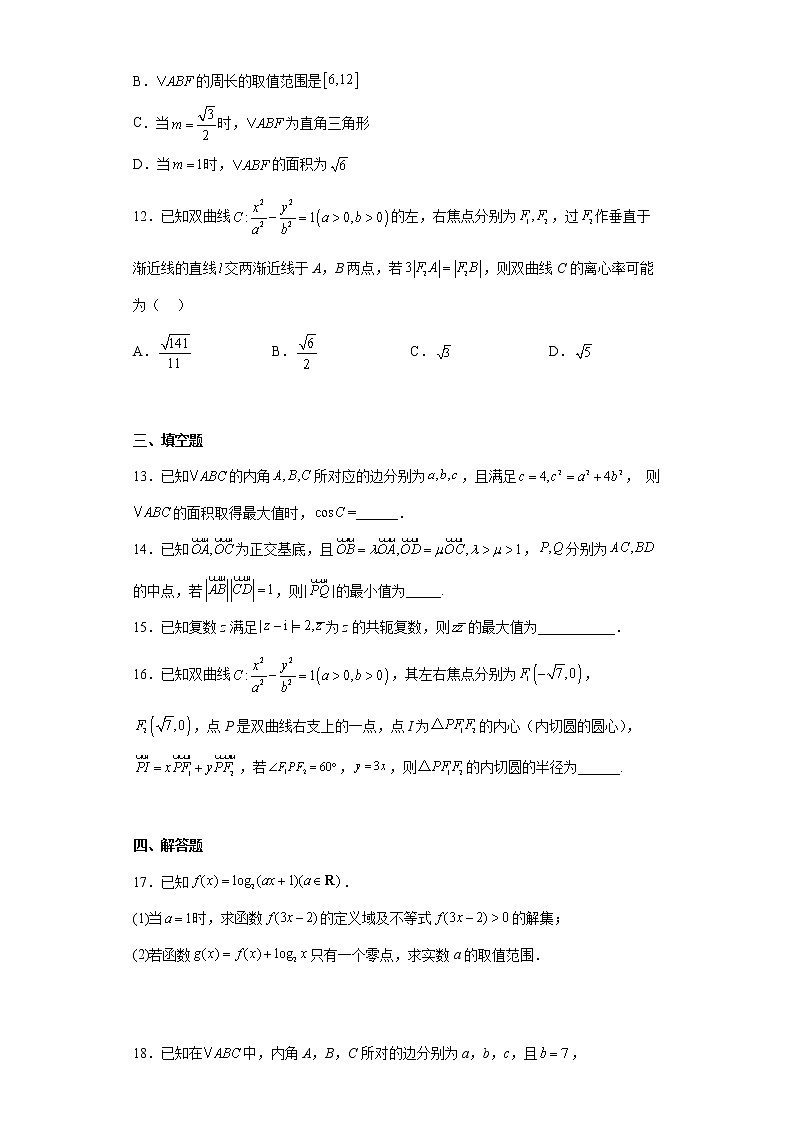 B．∨ABF的周长的取值范围是[6,12]
C．当m=√3/2时，∨ABF为直角三角形
D．当m=1时，∨ABF的面积为√6
12．已知双曲线C:x²/a²−y²/b²=1(a>0,b>0)的左，右焦点分别为F₁,F₂，过F₂作垂直于
渐近线的直线l交两渐近线于A，B两点，若3|F₂A|=|F₂B|，则双曲线C的离心率可能
为（ ）
A．√141/11 B．√6/2 C．√3 D．√5
三、填空题
13．已知∨ABC的内角A,B,C所对应的边分别为a,b,c，且满足c=4,c²=a²+4b²， 则
∨ABC的面积取得最大值时，cosC=______．
14．已知OA,OC为正交基底，且OB=λOA,OD=μOC,λ>μ>1，P,Q分别为AC,BD
的中点，若|AB||CD|=1，则|PQ|的最小值为_____.
15．已知复数z满足|z−i|=2,z̄为z的共轭复数，则zz̄的最大值为___________．
16．已知双曲线C:x²/a²−y²/b²=1(a>0,b>0)，其左右焦点分别为F₁(−√7,0)，
F₂(√7,0)，点P是双曲线右支上的一点，点I为△PF₁F₂的内心（内切圆的圆心），
PI=xPF₁+yPF₂，若∠F₁PF₂=60°，y=3x，则△PF₁F₂的内切圆的半径为______.
四、解答题
17．已知f(x)=log₂(ax+1)(a∈R)．
(1)当a=1时，求函数f(3x−2)的定义域及不等式f(3x−2)>0的解集;
(2)若函数g(x)=f(x)+log₂x只有一个零点，求实数a的取值范围．
18．已知在∨ABC中，内角A，B，C所对的边分别为a，b，c，且b=7，